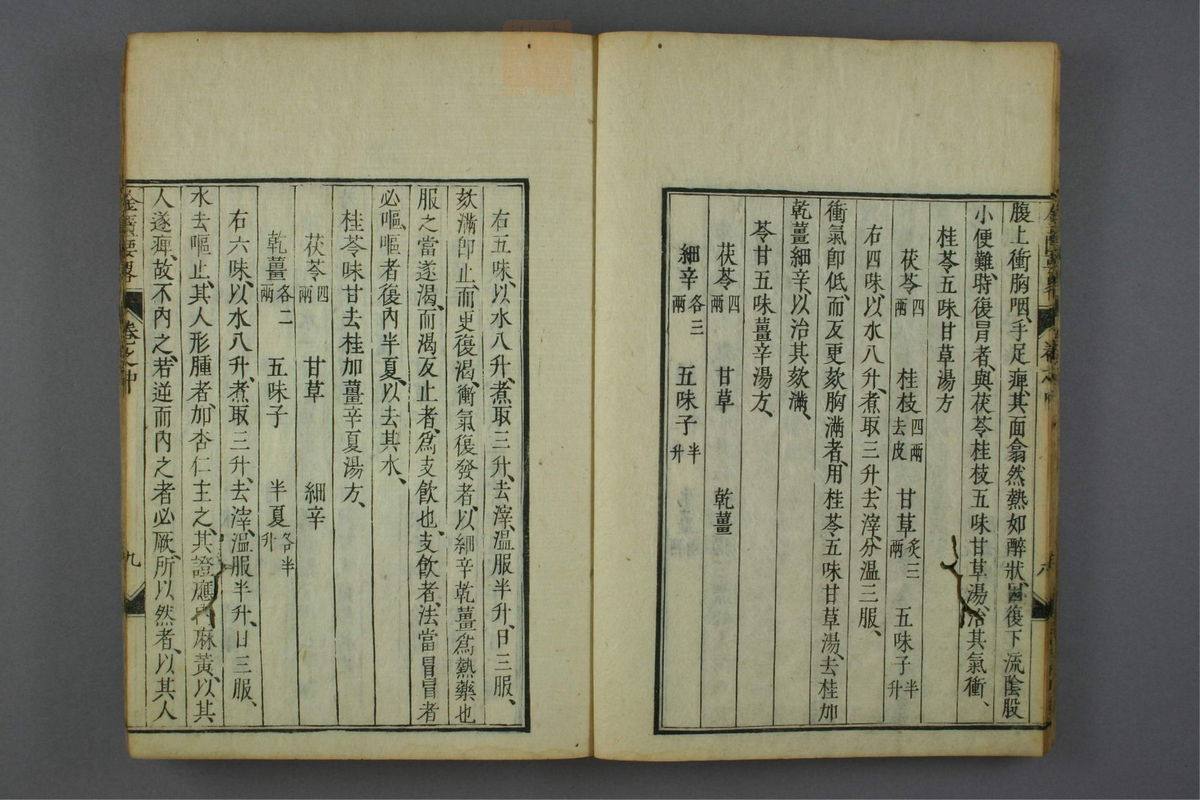 腹上衝胸咽、手足痺、其面翕然熱如醉狀、因復下流陰股
小便難、時復冒者、與茯苓桂枝五味甘草湯、治其氣衝、
桂苓五味甘草湯方
茯苓四兩 桂枝四兩去皮 甘草炙三兩 五味子半升
右四味、以水八升、煮取三升、去滓、分溫三服、
衝氣即低、而反更欬胸滿者、用桂苓五味甘草湯、去桂加
乾薑細辛、以治其欬滿、
苓甘五味薑辛湯方、
茯苓四兩 甘草 乾薑
細辛各三兩 五味子半升
右五味、以水八升、煮取三升、去滓、溫服半升、日三服、
欬滿即止、而更復渴、衝氣復發者、以細辛乾薑爲熱藥也
服之當遂渴、而渴反止者、爲支飲也、支飲者、法當冒冒者
必嘔、嘔者復內半夏、以去其水、
桂苓味甘去桂加薑辛夏湯方、
茯苓四兩 甘草 細辛
乾薑各二兩 五味子 半夏各半升
右六味、以水八升、煮取三升、去滓、溫服半升、日三服、
水去嘔止、其人形腫者、加杏仁主之、其證應內麻黃、以其
人遂痺、故不內之、若逆而內之者必厥、所以然者、以其人
金匱要畧 卷之中 九